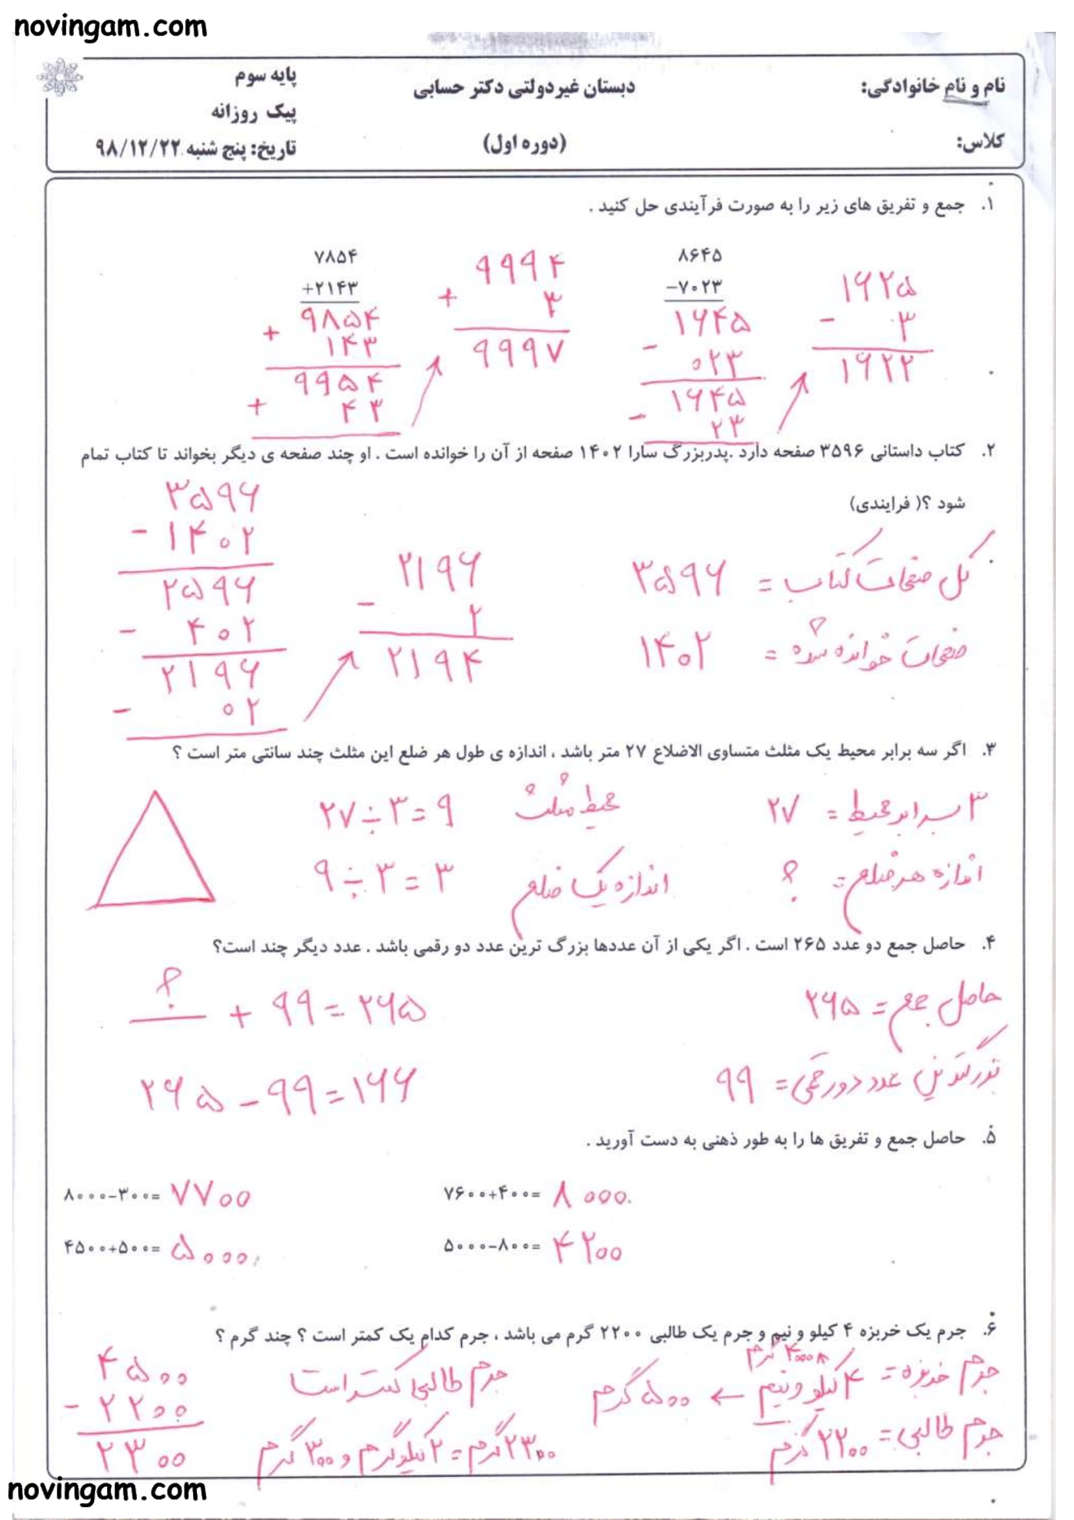 novingam.com
نام و نام خانوادگی: دبستان غیردولتی دکتر حسابی پایه سوم
پیک روزانه
کلاس: (دوره اول) تاریخ: پنج شنبه ۹۸/۱۲/۲۲
۱. جمع و تفریق های زیر را به صورت فرآیندی حل کنید .
۸۶۴۵
−۷۰۲۳
۱۶۴۵
− ۰۲۳
۱۶۴۵
− ۲۳
۱۶۲۵
− ۳
۱۶۲۲
۷۸۵۴
+۲۱۴۳
۹۸۵۴
+ ۱۴۳
۹۹۵۴
+ ۴۳
۹۹۹۴
+ ۳
۹۹۹۷
۲. کتاب داستانی ۳۵۹۶ صفحه دارد .پدربزرگ سارا ۱۴۰۲ صفحه از آن را خوانده است . او چند صفحه ی دیگر بخواند تا کتاب تمام
شود ؟( فرایندی)
کل صفحات کتاب = ۳۵۹۶
صفحات خوانده شده = ۱۴۰۲
۳۵۹۶
− ۱۴۰۲
۲۵۹۶
− ۴۰۲
۲۱۹۶
− ۰۲
۲۱۹۶
− ۲
۲۱۹۴
۳. اگر سه برابر محیط یک مثلث متساوی الاضلاع ۲۷ متر باشد ، اندازه ی طول هر ضلع این مثلث چند سانتی متر است ؟
۳ برابر محیط = ۲۷ محیط مثلث ۲۷ ÷ ۳ = ۹
اندازه هر ضلع = ؟ اندازه یک ضلع ۹ ÷ ۳ = ۳
۴. حاصل جمع دو عدد ۲۶۵ است . اگر یکی از آن عددها بزرگ ترین عدد دو رقمی باشد . عدد دیگر چند است؟
حاصل جمع = ۲۶۵ ؟ + ۹۹ = ۲۶۵
بزرگترین عدد دو رقمی = ۹۹ ۲۶۵ − ۹۹ = ۱۶۶
۵. حاصل جمع و تفریق ها را به طور ذهنی به دست آورید .
۷۶۰۰+۴۰۰= ۸۰۰۰ ۸۰۰۰−۳۰۰= ۷۷۰۰
۵۰۰۰−۸۰۰= ۴۲۰۰ ۴۵۰۰+۵۰۰= ۵۰۰۰
۶. جرم یک خربزه ۴ کیلو و نیم و جرم یک طالبی ۲۲۰۰ گرم می باشد ، جرم کدام یک کمتر است ؟ چند گرم ؟
۴۰۰۰ گرم
جرم خربزه = ۴ کیلو و نیم ← ۵۰۰ گرم جرم طالبی کمتر است
جرم طالبی = ۲۲۰۰ گرم ۲۳۰۰ گرم = ۲ کیلوگرم و ۳۰۰ گرم
۴۵۰۰
− ۲۲۰۰
۲۳۰۰
novingam.com